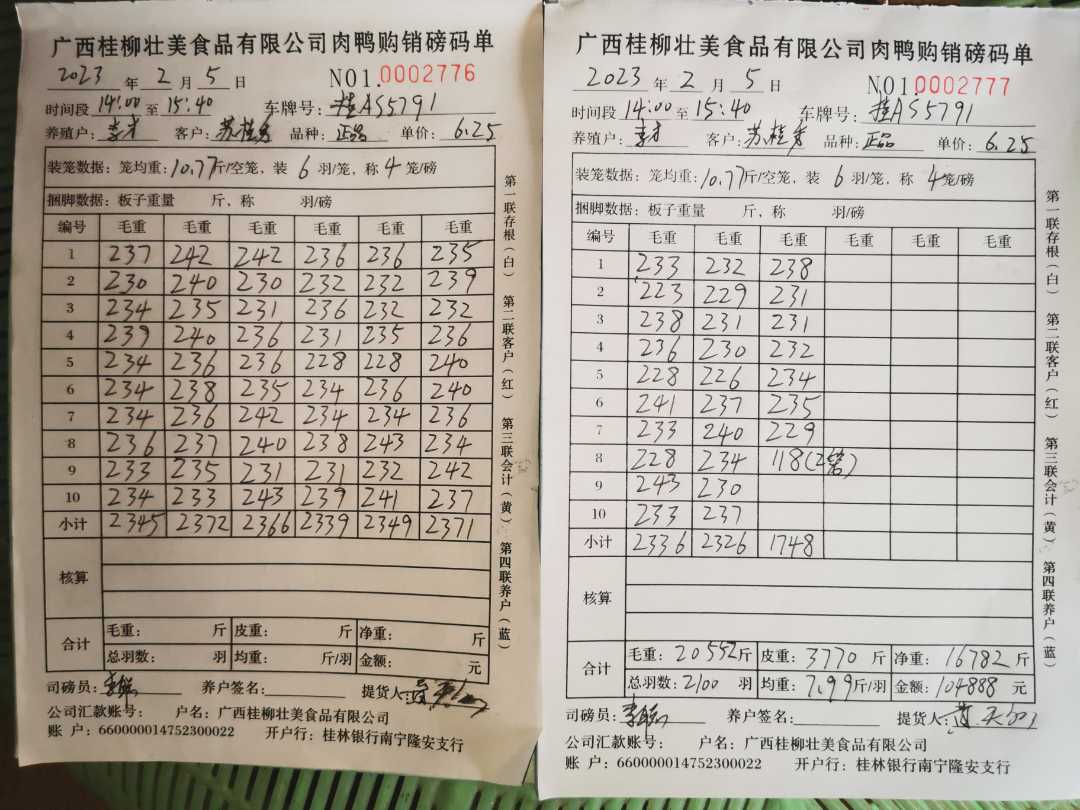 广西桂柳壮美食品有限公司肉鸭购销磅码单
2023 年 2 月 5 日 NO1.0002776
时间段 14:00 至 15:40 车牌号: 桂AS5791
养殖户: 客户: 苏桂秀 品种: 正品 单价: 6.25
装笼数据: 笼均重: 10.77 斤/空笼, 装 6 羽/笼, 称 4 笼/磅
捆脚数据: 板子重量 斤, 称 羽/磅
编号 毛重 毛重 毛重 毛重 毛重 毛重
1 237 242 242 236 236 235
2 230 240 230 232 232 239
3 234 235 231 236 232 232
4 239 240 236 231 235 236
5 234 236 236 228 228 240
6 234 238 235 234 236 240
7 234 236 242 234 234 236
8 236 237 240 238 243 234
9 233 235 231 231 232 242
10 234 233 243 239 241 237
小计 2345 2372 2366 2339 2349 2371
核算
合计
毛重: 斤 皮重: 斤 净重: 斤
总羽数: 羽 均重: 斤/羽 金额: 元
司磅员: 养户签名: 提货人:
公司汇款账号: 户名: 广西桂柳壮美食品有限公司
账 户: 660000014752300022 开户行: 桂林银行南宁隆安支行
第一联存根(白) 第二联客户(红) 第三联会计(黄) 第四联养户(蓝)
广西桂柳壮美食品有限公司肉鸭购销磅码单
2023 年 2 月 5 日 NO1.0002777
时间段 14:00 至 15:40 车牌号: 桂AS5791
养殖户: 客户: 苏桂秀 品种: 正品 单价: 6.25
装笼数据: 笼均重: 10.77 斤/空笼, 装 6 羽/笼, 称 4 笼/磅
捆脚数据: 板子重量 斤, 称 羽/磅
编号 毛重 毛重 毛重 毛重 毛重 毛重
1 233 232 238
2 223 229 231
3 238 231 231
4 236 230 232
5 228 226 234
6 241 237 235
7 233 240 229
8 228 234 118(2笼)
9 243 230
10 233 237
小计 2336 2326 1748
核算
合计
毛重: 20552 斤 皮重: 3770 斤 净重: 16782 斤
总羽数: 2100 羽 均重: 7.99 斤/羽 金额: 104888 元
司磅员: 养户签名: 提货人:
公司汇款账号: 户名: 广西桂柳壮美食品有限公司
账 户: 660000014752300022 开户行: 桂林银行南宁隆安支行
第一联存根(白) 第二联客户(红) 第三联会计(黄) 第四联养户(蓝)